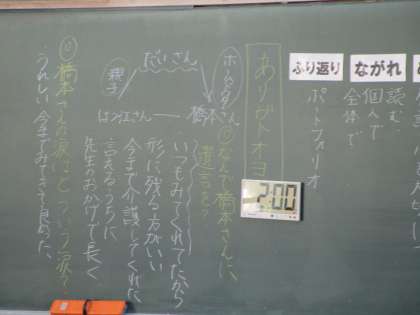 ながれ
読む
個人で
全体で
ふり返り
ポートフォリオ
ありがトオヨ
2:00
ホームヘルパー
橋本さん
だいさん
親子
はつ江さん
なんで橋本さんに、
遺言を?
いつもみてくれてたから
形に残る方がいい
今まで介護してくれた
言えるうちに
先生のおかげで長く
橋本さんの涙はどういう涙?
うれしい 今までみてきて良かった、